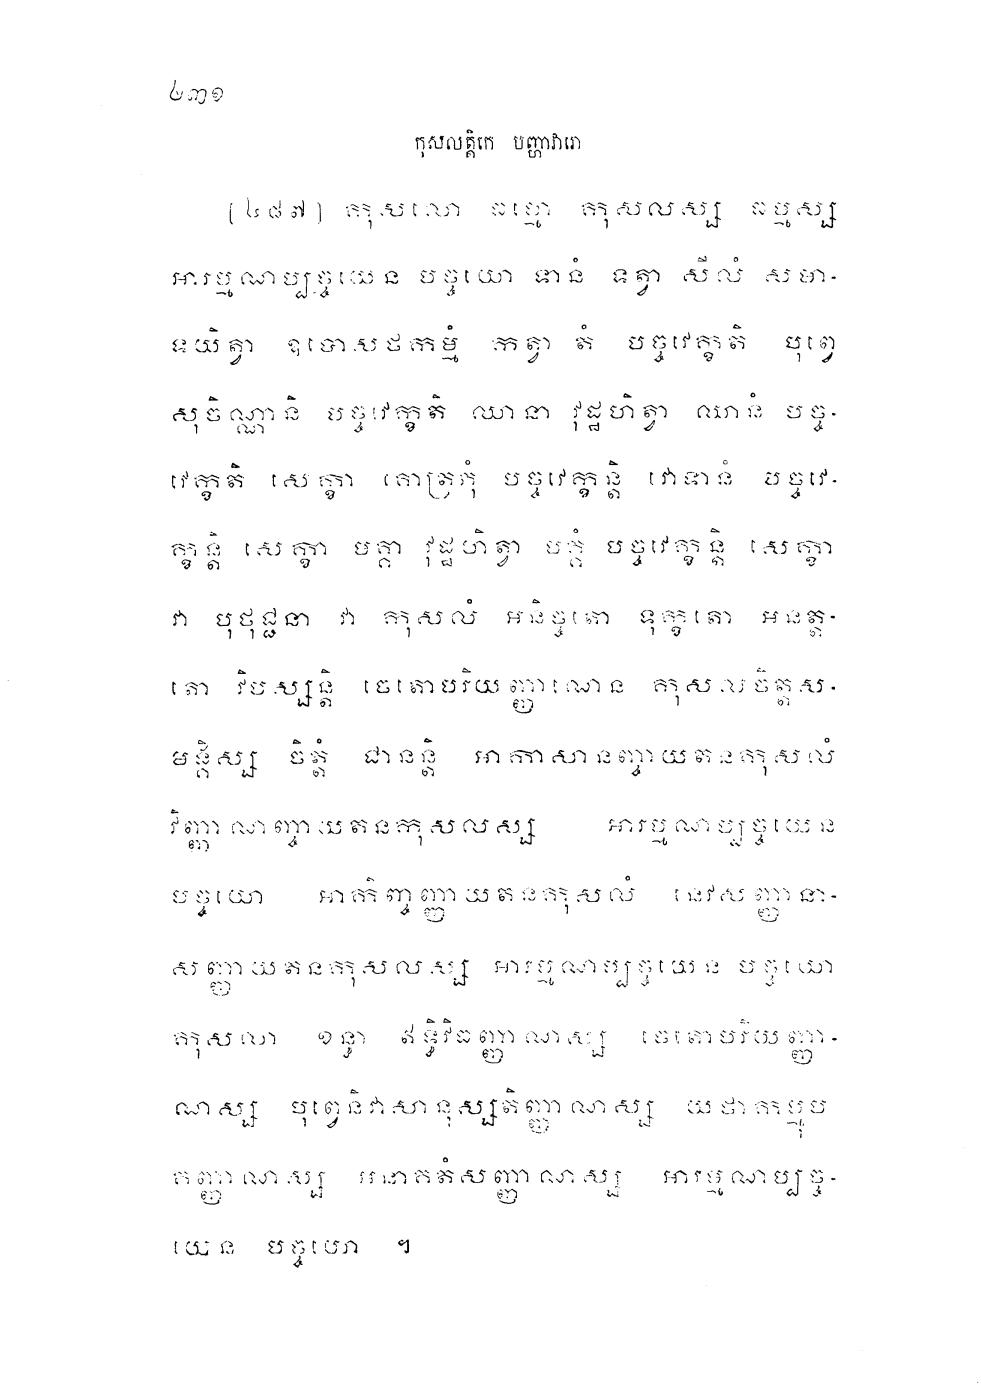 ៤៣១
កុសលត្តិកេ បញ្ហាវារោ
[៤៨៧] កុសលោ ធម្មោ កុសលស្ស ធម្មស្ស
អារម្មណប្បច្ចយេន បច្ចយោ ទានំ ទត្វា សីលំ សមា-
ទយិត្វា ឧបោសថកម្មំ កត្វា តំ បច្ចវេក្ខតិ បុព្វេ
សុចិណ្ណានិ បច្ចវេក្ខតិ ឈានា វុដ្ឋហិត្វា ឈានំ បច្ច-
វេក្ខតិ សេក្ខា គោត្រភុំ បច្ចវេក្ខន្តិ វោទានំ បច្ចវេ-
ក្ខន្តិ សេក្ខា មគ្គា វុដ្ឋហិត្វា មគ្គំ បច្ចវេក្ខន្តិ សេក្ខា
វា បុថុជ្ជនា វា កុសលំ អនិច្ចតោ ទុក្ខតោ អនត្ត-
តោ វិបស្សន្តិ ចេតោបរិយញ្ញាណេន កុសលចិត្តស-
មង្គិស្ស ចិត្តំ ជានន្តិ អាកាសានញ្ចាយតនកុសលំ
វិញ្ញាណញ្ចាយតនកុសលស្ស អារម្មណប្បច្ចយេន
បច្ចយោ អាកិញ្ចញ្ញាយតនកុសលំ នេវសញ្ញានា-
សញ្ញាយតនកុសលស្ស អារម្មណប្បច្ចយេន បច្ចយោ
កុសលា ខន្ធា ឥទ្ធិវិធញ្ញាណស្ស ចេតោបរិយញ្ញា-
ណស្ស បុព្វេនិវាសានុស្សតិញ្ញាណស្ស យថាកម្មុប
គញ្ញាណស្ស អនាគតំសញ្ញាណស្ស អារម្មណប្បច្ច-
យេន បច្ចយោ ។